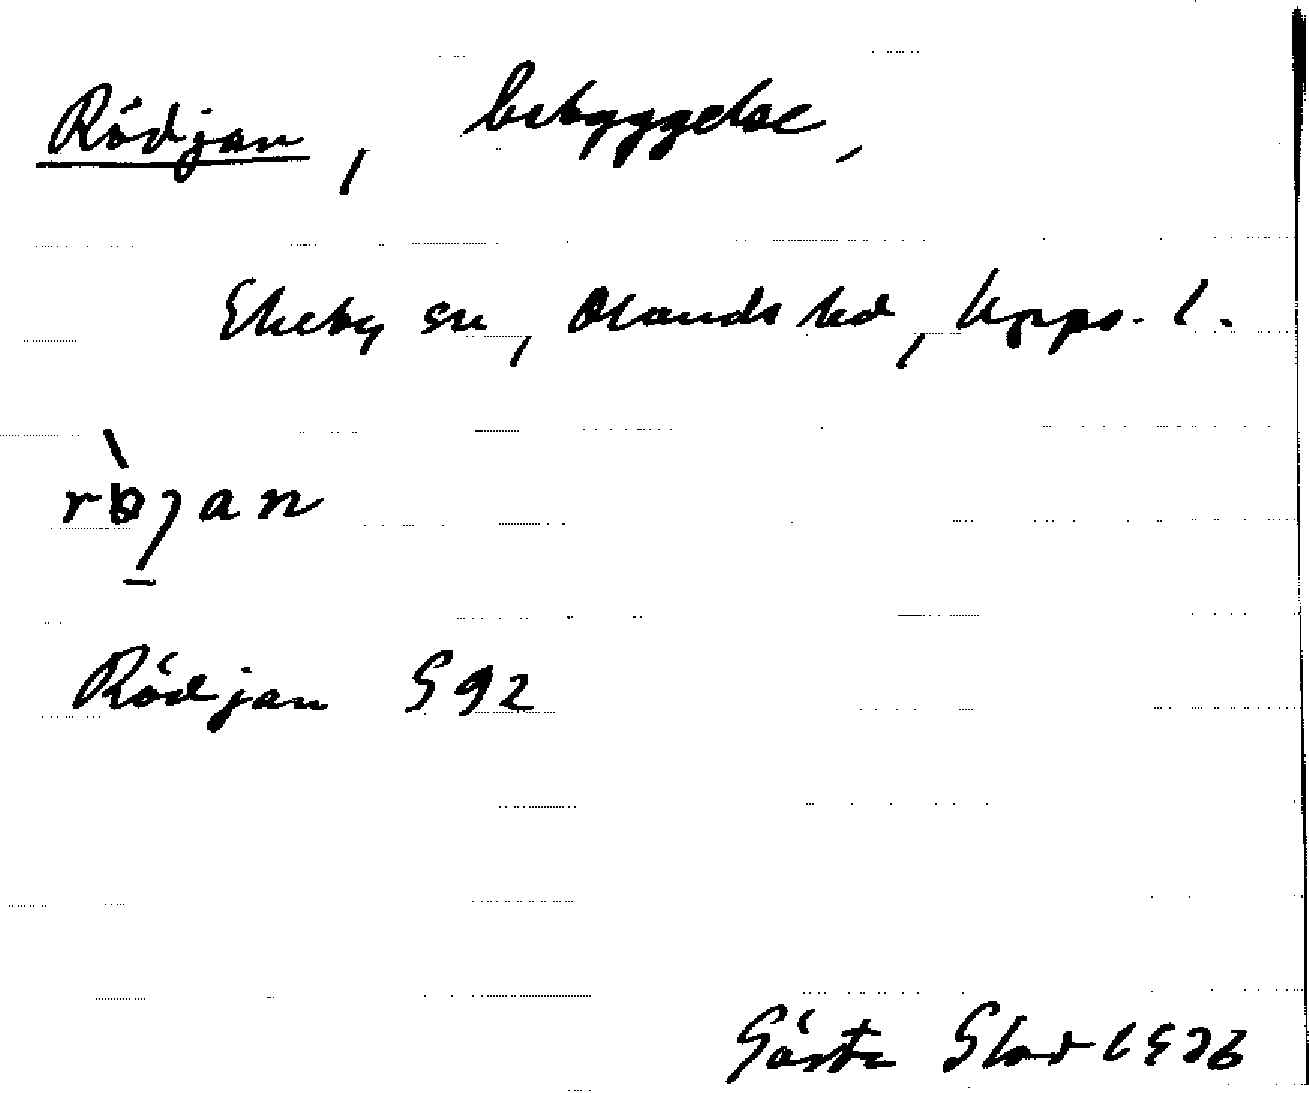 Rödjan, bebyggelse,
Ekeby sn, Olands hd, Upps. l.
Rödjan G 92
Gösta 1926